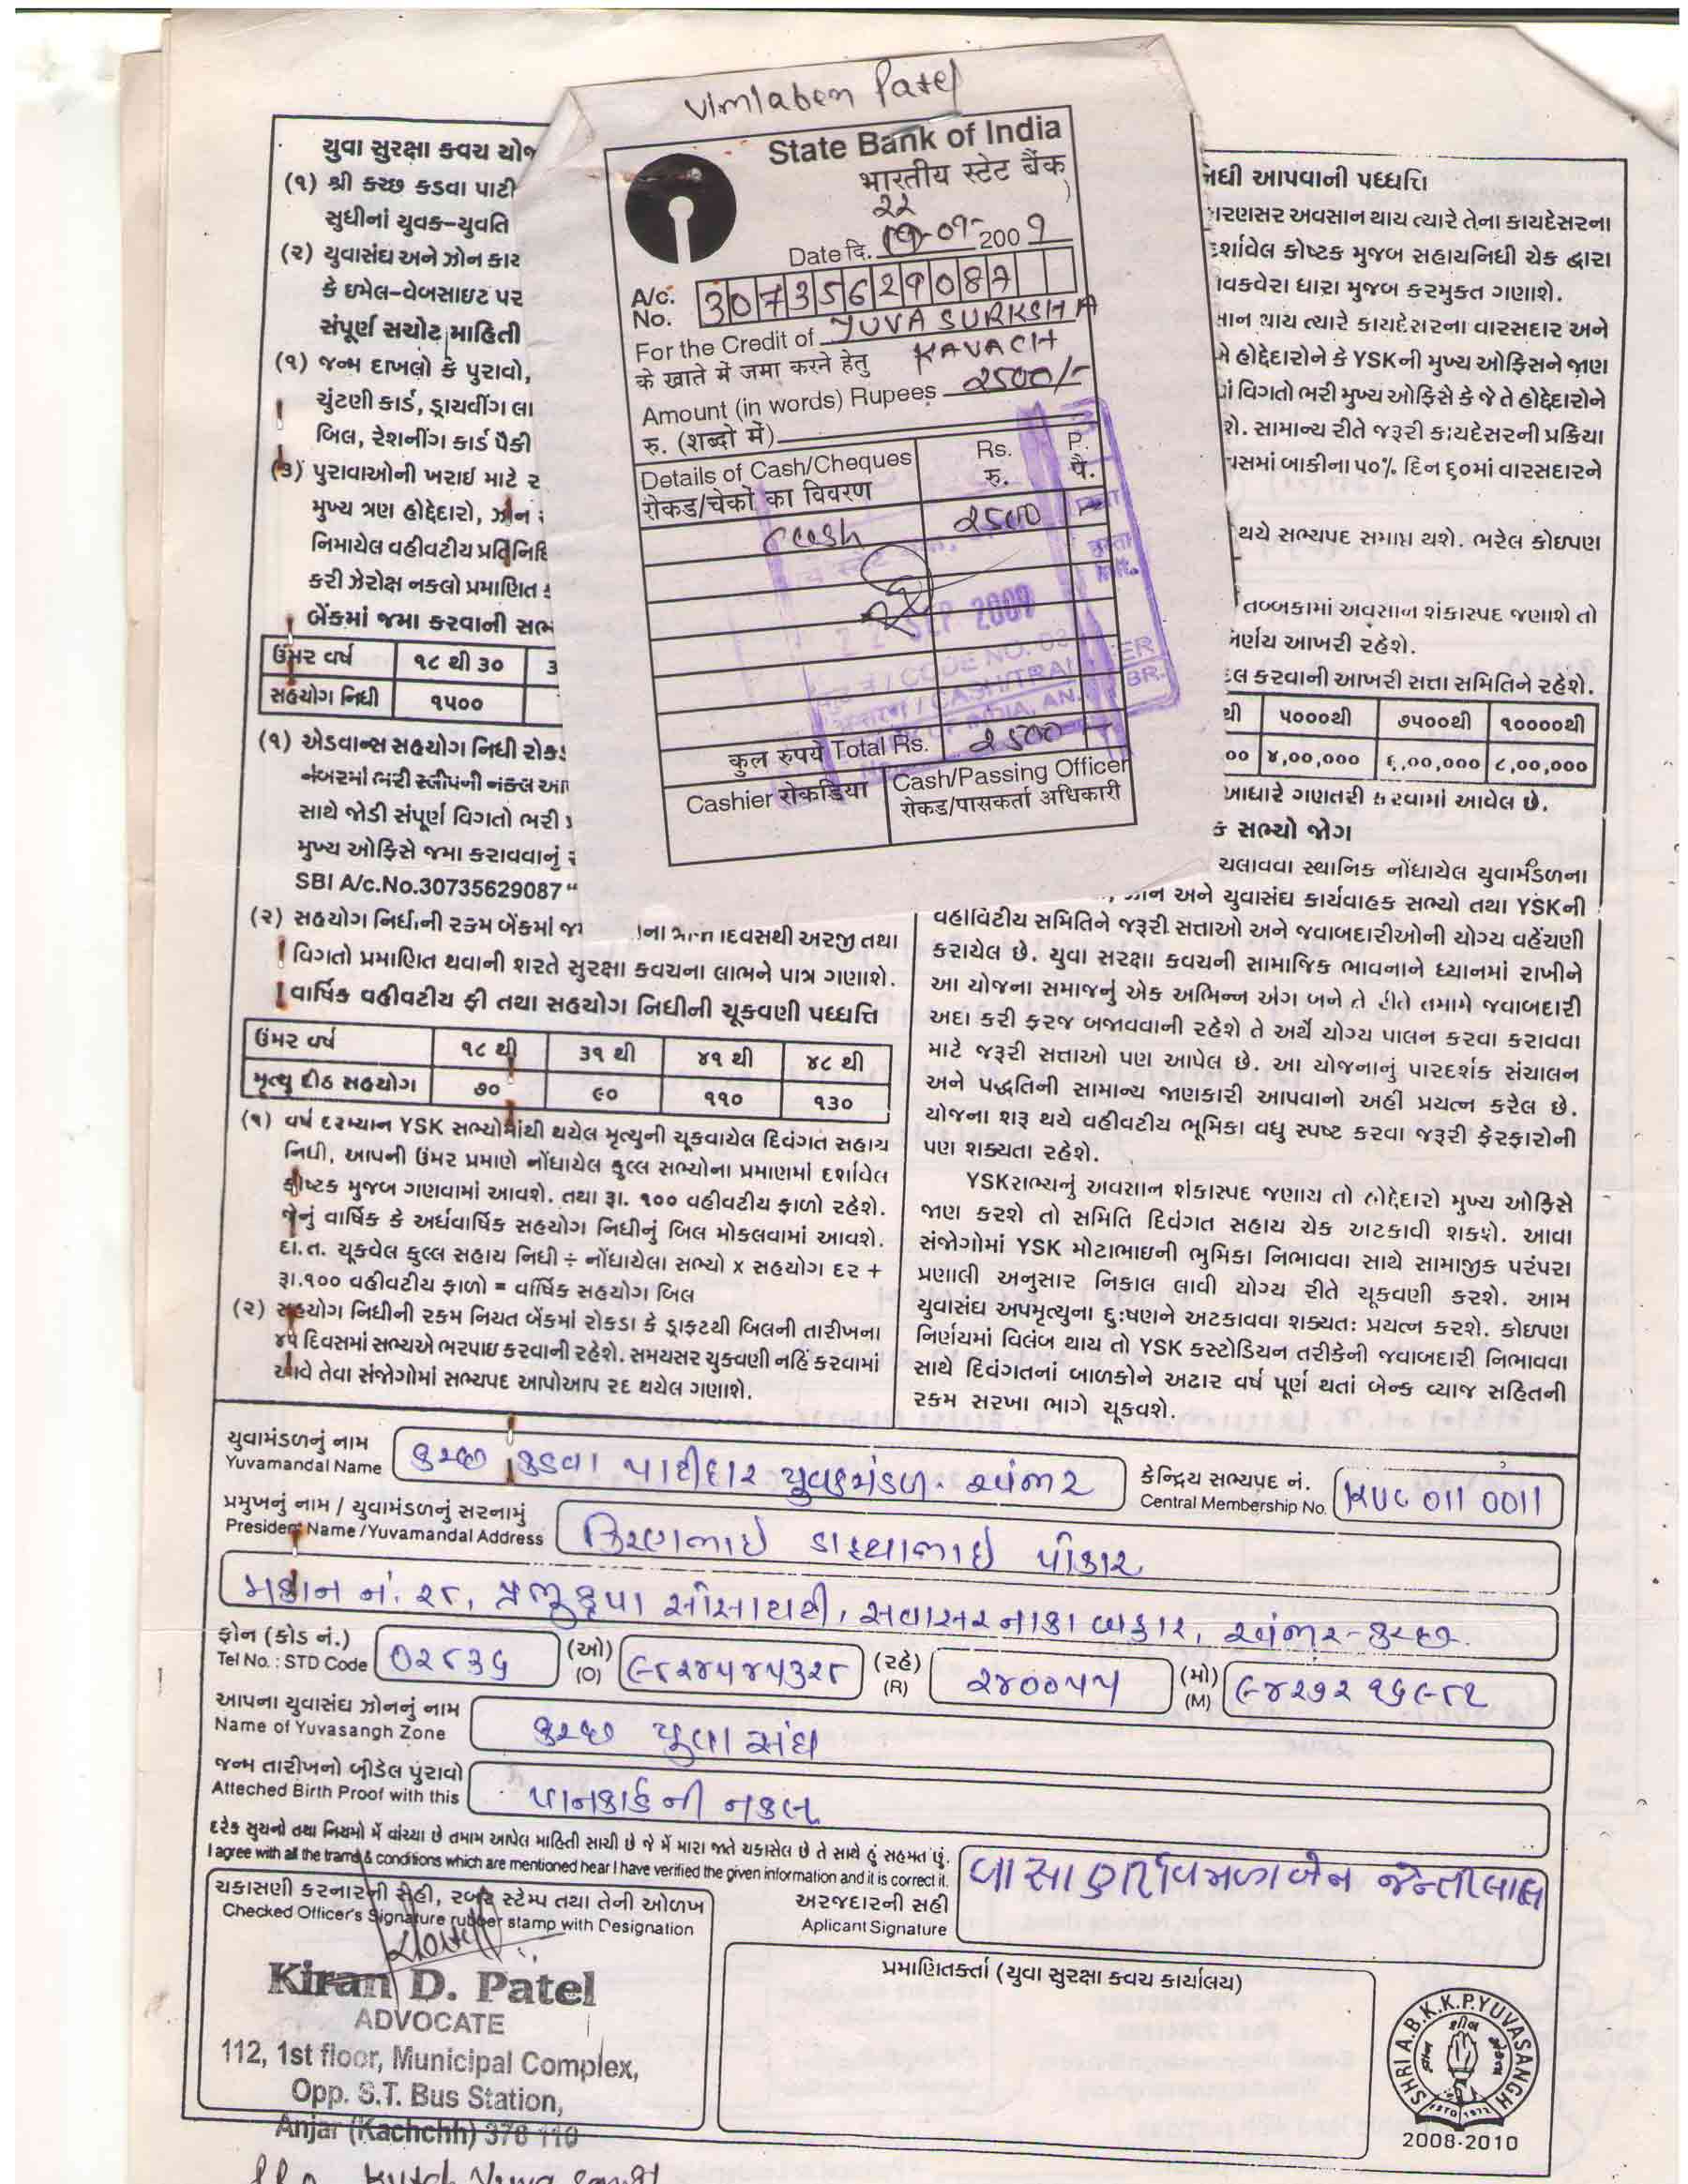 vimlaben Patel
State Bank of India
भारतीय स्टेट बैंक
22
Date दि. 2009
A/c. No. 30735629087
For the Credit of YUVA SURKSHA
के खाते में जमा करने हेतु KAVACH
Amount (in words) Rupees 2500/-
रु. (शब्दो में)
Details of Cash/Cheques Rs. P.
रोकड/चेकों का विवरण रु. पै.
cash 2500
SEP 2009
कुल रुपये Total Rs. 2500
Cashier रोकडिया Cash/Passing Officer
रोकड/पासकर्ता अधिकारी
યુવા સુરક્ષા કવચ યોજ
(૧) શ્રી કચ્છ કડવા પાટી
સુધીનાં યુવક-યુવતિ
(૨) યુવાસંઘ અને ઝોન કાર
કે ઇમેલ-વેબસાઇટ પર
સંપૂર્ણ સચોટ માહિતી
(૧) જન્મ દાખલો કે પુરાવો,
ચુંટણી કાર્ડ, ડ્રાયવીંગ લા
બિલ, રેશનીંગ કાર્ડ પૈકી
(૩) પુરાવાઓની ખરાઇ માટે ર
મુખ્ય ત્રણ હોદ્દેદારો, ઝોન
નિમાયેલ વહીવટીય પ્રતિનિધિ
કરી ઝેરોક્ષ નકલો પ્રમાણિત
બેંકમાં જમા કરવાની સભ
ઉંમર વર્ષ ૧૮ થી ૩૦ ૩
સહયોગ નિધી ૧૫૦૦
(૧) એડવાન્સ સહયોગ નિધી રોકડ
નંબરમાં ભરી સ્લીપની નકલ આ
સાથે જોડી સંપૂર્ણ વિગતો ભરી
મુખ્ય ઓફિસે જમા કરાવવાનું
SBI A/c.No.30735629087 “
(૨) સહયોગ નિધીની રકમ બેંકમાં જ દિવસથી અરજી તથા
વિગતો પ્રમાણિત થવાની શરતે સુરક્ષા કવચના લાભને પાત્ર ગણાશે.
વાર્ષિક વહીવટીય ફી તથા સહયોગ નિધીની ચૂકવણી પધ્ધતિ
ઉંમર વર્ષ ૧૮ થી ૩૧ થી ૪૧ થી ૪૮ થી
મૃત્યુ દીઠ સહયોગ ૭૦ ૯૦ ૧૧૦ ૧૩૦
(૧) વર્ષ દરમ્યાન YSK સભ્યોમાંથી થયેલ મૃત્યુની ચૂકવાયેલ દિવંગત સહાય
નિધી, આપની ઉંમર પ્રમાણે નોંધાયેલ કુલ્લ સભ્યોના પ્રમાણમાં દર્શાવેલ
કોષ્ટક મુજબ ગણવામાં આવશે. તથા રૂા. ૧૦૦ વહીવટીય ફાળો રહેશે.
જેનું વાર્ષિક કે અર્ધવાર્ષિક સહયોગ નિધીનું બિલ મોકલવામાં આવશે.
દા.ત. ચૂકવેલ કુલ્લ સહાય નિધી ÷ નોંધાયેલા સભ્યો x સહયોગ દર +
રૂા.૧૦૦ વહીવટીય ફાળો = વાર્ષિક સહયોગ બિલ
(૨) સહયોગ નિધીની રકમ નિયત બેંકમાં રોકડા કે ડ્રાફટથી બિલની તારીખના
૪૫ દિવસમાં સભ્યએ ભરપાઇ કરવાની રહેશે. સમયસર ચુકવણી નહિં કરવામાં
આવે તેવા સંજોગોમાં સભ્યપદ આપોઆપ રદ થયેલ ગણાશે.
નિધી આપવાની પધ્ધતિ
કારણસર અવસાન થાય ત્યારે તેના કાયદેસરના
દર્શાવેલ કોષ્ટક મુજબ સહાયનિધી ચેક દ્વારા
આવકવેરા ધારા મુજબ કરમુકત ગણાશે.
સાન થાય ત્યારે કાયદેસરના વારસદાર અને
હોદ્દેદારોને કે YSKની મુખ્ય ઓફિસને જાણ
વિગતો ભરી મુખ્ય ઓફિસે કે જે તે હોદ્દેદારોને
શે. સામાન્ય રીતે જરૂરી કાયદેસરની પ્રક્રિયા
વસમાં બાકીના ૫૦% દિન ૬૦માં વારસદારને
થયે સભ્યપદ સમાપ્ત થશે. ભરેલ કોઇપણ
તબ્બકામાં અવસાન શંકાસ્પદ જણાશે તો
નિર્ણય આખરી રહેશે.
દલ કરવાની આખરી સત્તા સમિતિને રહેશે.
થી ૫૦૦૦થી ૭૫૦૦થી ૧૦૦૦૦થી
૦૦ ૪,૦૦,૦૦૦ ૬,૦૦,૦૦૦ ૮,૦૦,૦૦૦
આધારે ગણતરી કરવામાં આવેલ છે.
ક સભ્યો જોગ
ચલાવવા સ્થાનિક નોંધાયેલ યુવામંડળના
અને યુવાસંઘ કાર્યવાહક સભ્યો તથા YSKની
વહાવિટીય સમિતિને જરૂરી સત્તાઓ અને જવાબદારીઓની યોગ્ય વહેંચણી
કરાયેલ છે. યુવા સરક્ષા કવચની સામાજિક ભાવનાને ધ્યાનમાં રાખીને
આ યોજના સમાજનું એક અભિન્ન અંગ બને તે રીતે તમામે જવાબદારી
અદા કરી ફરજ બજાવવાની રહેશે તે અર્થે યોગ્ય પાલન કરવા કરાવવા
માટે જરૂરી સત્તાઓ પણ આપેલ છે. આ યોજનાનું પારદર્શક સંચાલન
અને પદ્ધતિની સામાન્ય જાણકારી આપવાનો અહી પ્રયત્ન કરેલ છે.
યોજના શરૂ થયે વહીવટીય ભૂમિકા વધુ સ્પષ્ટ કરવા જરૂરી ફેરફારોની
પણ શક્યતા રહેશે.
YSKસભ્યનું અવસાન શંકાસ્પદ જણાય તો હોદ્દેદારો મુખ્ય ઓફિસે
જાણ કરશે તો સમિતિ દિવંગત સહાય ચેક અટકાવી શકશે. આવા
સંજોગોમાં YSK મોટાભાઇની ભુમિકા નિભાવવા સાથે સામાજીક પરંપરા
પ્રણાલી અનુસાર નિકાલ લાવી યોગ્ય રીતે ચૂકવણી કરશે. આમ
યુવાસંઘ અપમૃત્યુના દુ:ષણને અટકાવવા શક્યત: પ્રયત્ન કરશે. કોઇપણ
નિર્ણયમાં વિલંબ થાય તો YSK કસ્ટોડિયન તરીકેની જવાબદારી નિભાવવા
સાથે દિવંગતનાં બાળકોને અઢાર વર્ષ પૂર્ણ થતાં બેન્ક વ્યાજ સહિતની
રકમ સરખા ભાગે ચૂકવશે.
યુવામંડળનું નામ કચ્છ કડવા પાટીદાર યુવકમંડળ. અંજાર કેન્દ્રિય સભ્યપદ નં.
Yuvamandal Name Central Membership No. KUC 011 0011
પ્રમુખનું નામ / યુવામંડળનું સરનામું
President Name /Yuvamandal Address કિરણભાઇ ડાહ્યાભાઇ પોકાર
મકાન નં. ૨૮, પ્રભુકૃપા સોસાયટી, સવાસર નાકા બહાર, અંજાર-કચ્છ.
ફોન (કોડ નં.) (ઓ) (રહે) (મો)
Tel No. : STD Code ૦૨૮૩૬ (O) ૯૮૨૪૫૪૫૩૨૮ (R) ૨૪૦૦૫૫ (M) ૯૪૨૭૨ ૧૬૯૮૨
આપના યુવાસંઘ ઝોનનું નામ
Name of Yuvasangh Zone કચ્છ યુવા સંઘ
જન્મ તારીખનો બીડેલ પુરાવો
Atteched Birth Proof with this પાનકાર્ડ ની નકલ
દરેક સુચનો તથા નિયમો મેં વાંચ્યા છે તમામ આપેલ માહિતી સાચી છે જે મેં મારા જાતે ચકાસેલ છે તે સાથે હું સહમત છું.
I agree with all the trams & conditions which are mentioned hear I have verified the given information and it is correct it.
ચકાસણી કરનારની સહી, રબર સ્ટેમ્પ તથા તેની ઓળખ
Checked Officer's Signature rubber stamp with Designation
અરજદારની સહી
Aplicant Signature
વાસાણી વિમળાબેન જેન્તીલાલ
Kiran D. Patel
ADVOCATE
112, 1st floor, Municipal Complex,
Opp. S.T. Bus Station,
Anjar (Kachchh) 370 110
પ્રમાણિતકર્તા (યુવા સુરક્ષા કવચ કાર્યાલય)
SHRI A.B.K.K.P. YUVASANGH
2008-2010